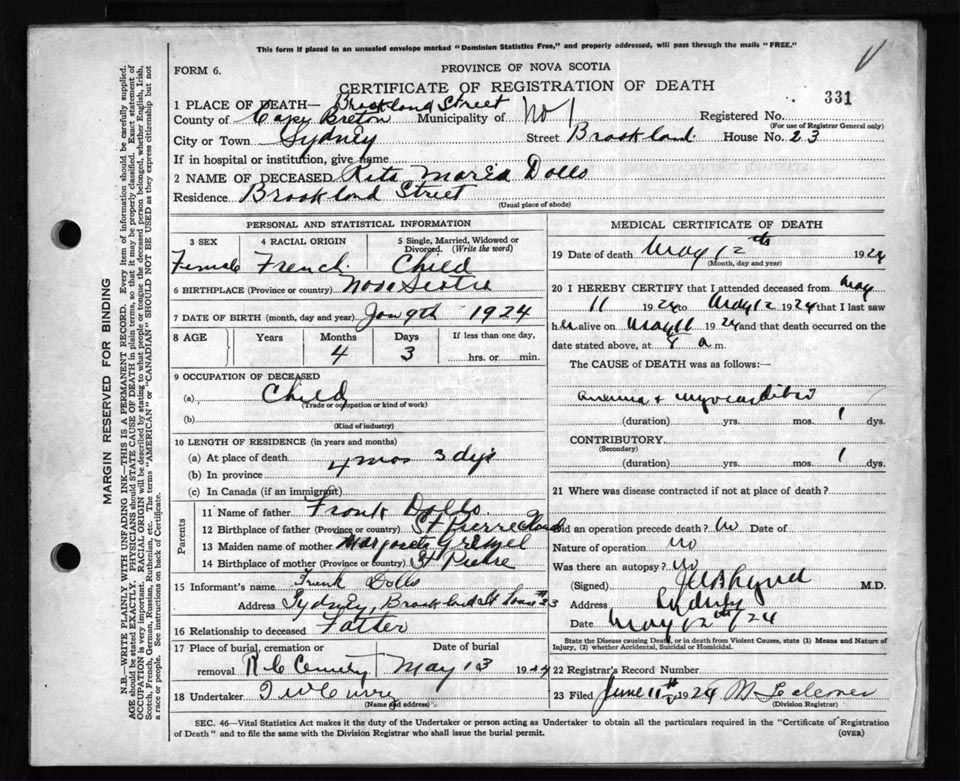 This form if placed in an unsealed envelope marked "Dominion Statistics Free," and properly addressed, will pass through the mails "FREE."
FORM 6.
PROVINCE OF NOVA SCOTIA
CERTIFICATE OF REGISTRATION OF DEATH
331
1 PLACE OF DEATH— Brookland Street
County of Cape Breton Municipality of No 1 Registered No.
(For use of Registrar General only)
City or Town Sydney Street Brookland House No. 23
If in hospital or institution, give name
2 NAME OF DECEASED Rita Maria Dolls
Residence Brookland Street
(Usual place of abode)
PERSONAL AND STATISTICAL INFORMATION
3 SEX 4 RACIAL ORIGIN 5 Single, Married, Widowed or Divorced. (Write the word)
Female French. Child
6 BIRTHPLACE (Province or country) Nova Scotia
7 DATE OF BIRTH (month, day and year) Jan 9th 1924
8 AGE Years Months Days If less than one day,
4 3 hrs. or min.
9 OCCUPATION OF DECEASED
(a) Child
(Trade or occupation or kind of work)
(b)
(Kind of industry)
10 LENGTH OF RESIDENCE (in years and months)
(a) At place of death 4 mos 3 dys
(b) In province
(c) In Canada (if an immigrant)
Parents
11 Name of father Frank Dolls
12 Birthplace of father (Province or country) St Pierre
13 Maiden name of mother Margaret
14 Birthplace of mother (Province or country) St Pierre
15 Informant's name Frank Dolls
Address Sydney, Brookland St House 23
16 Relationship to deceased Father
17 Place of burial, cremation or removal Date of burial
R. C. Cemetery May 13 1924
18 Undertaker
(Name and address)
MEDICAL CERTIFICATE OF DEATH
19 Date of death May 12th 1924
(Month, day and year)
20 I HEREBY CERTIFY that I attended deceased from May
11 1924 to May 12 1924 that I last saw
her alive on May 11 1924 and that death occurred on the
date stated above, at 8 a m.
The CAUSE of DEATH was as follows:—
Anemia + myocarditis
(duration) yrs. mos. 1 dys.
CONTRIBUTORY
(Secondary)
(duration) yrs. mos. 1 dys.
21 Where was disease contracted if not at place of death?
Did an operation precede death? No Date of
Nature of operation no
Was there an autopsy? no
(Signed) M.D.
Address Sydney
Date May 12th 1924
State the Disease causing Death, or in death from Violent Causes, state (1) Means and Nature of Injury, (2) whether Accidental, Suicidal or Homicidal.
22 Registrar's Record Number
23 Filed June 11th 1924
(Division Registrar)
SEC. 46—Vital Statistics Act makes it the duty of the Undertaker or person acting as Undertaker to obtain all the particulars required in the "Certificate of Registration
of Death" and to file the same with the Division Registrar who shall issue the burial permit.
(OVER)
MARGIN RESERVED FOR BINDING
N.B.—WRITE PLAINLY WITH UNFADING INK—THIS IS A PERMANENT RECORD. Every item of information should be carefully supplied.
AGE should be stated EXACTLY. PHYSICIANS should STATE CAUSE OF DEATH in plain terms, so that it may be properly classified. Exact statement of
OCCUPATION is very important. RACIAL ORIGIN will be described by stating to what people or tongue the deceased person belonged, whether English, Irish,
Scotch, French, German, Russian, Ruthenian, etc. The terms "AMERICAN" or "CANADIAN" SHOULD NOT BE USED as they express citizenship but not
a race or people. See instructions on back of Certificate.